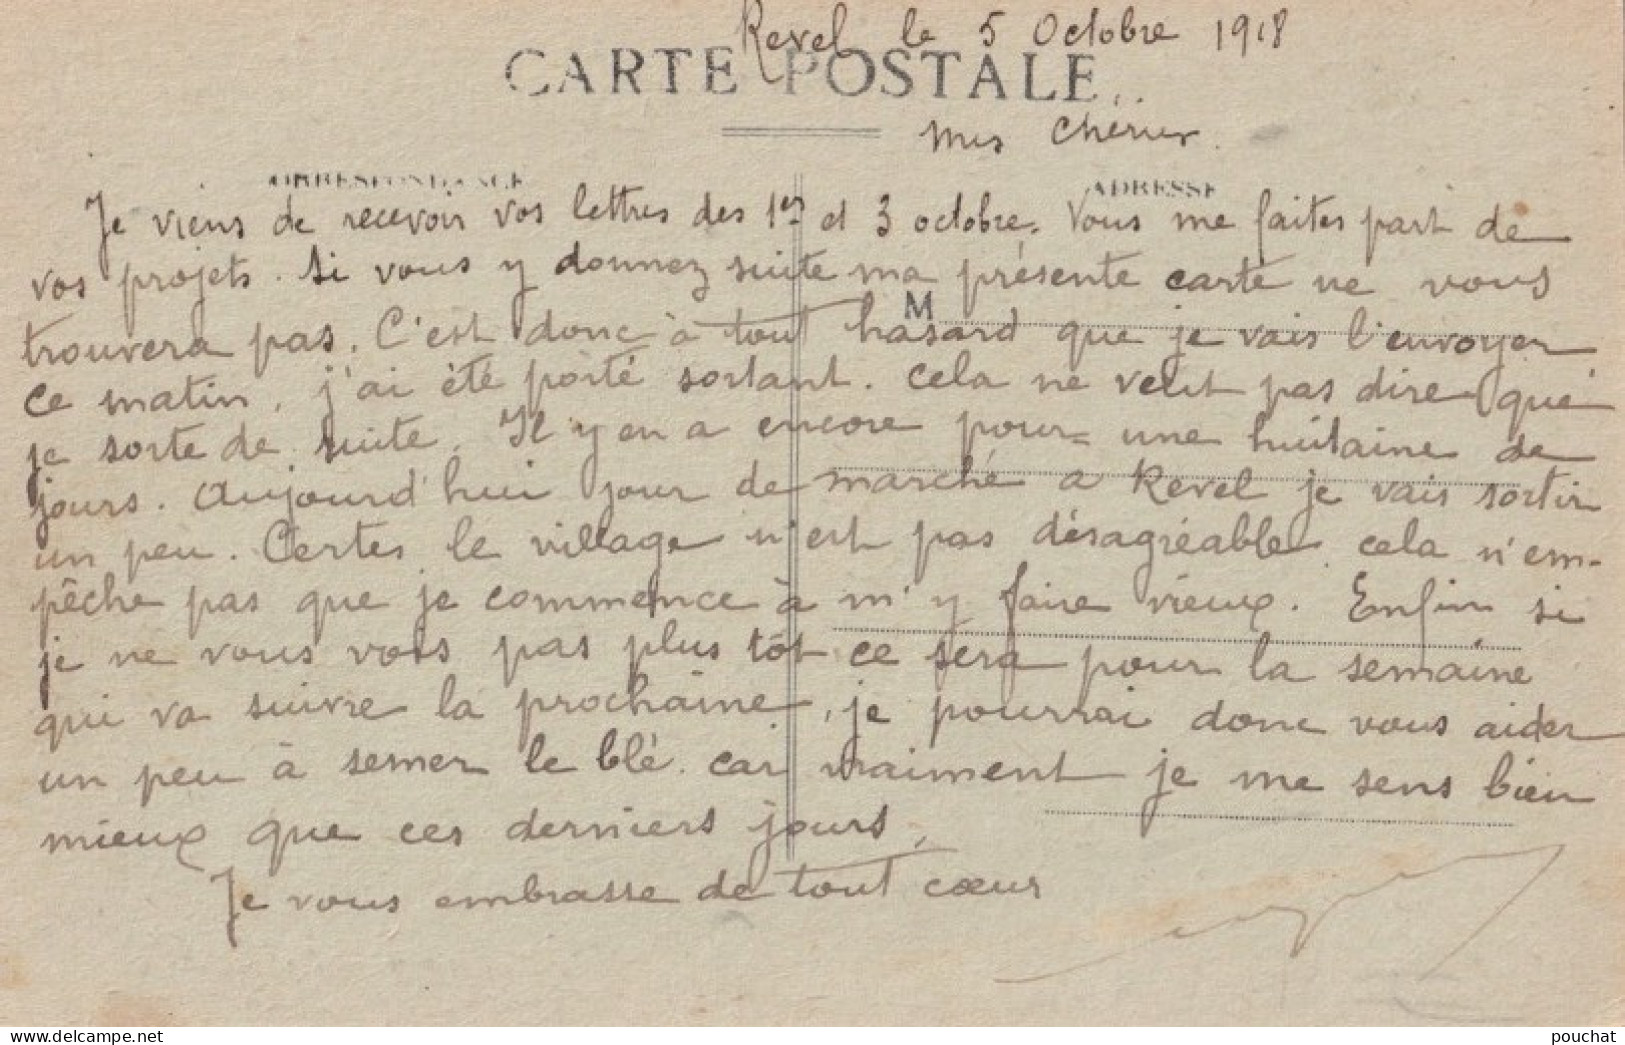 Revel le 5 Octobre 1918
CARTE POSTALE
Mes Chéries
CORRESPONDANCE
ADRESSE
Je viens de recevoir vos lettres des 1er et 3 octobre. Vous me faites part de
vos projets. Si vous y donnez suite ma présente carte ne vous
M
trouvera pas. C'est donc à tout hasard que je vais l'envoyer
Ce matin, j'ai été porté sortant. Cela ne veut pas dire que
je sorte de suite. Il y en a encore pour une huitaine de
jours. Aujourd'hui jour de marché a Revel je vais sortir
un peu. Certes, le village n'est pas désagréable, cela n'em-
pêche pas que je commence à m'y faire vieux. Enfin si
je ne vous vois pas plus tôt ce sera pour la semaine
qui va suivre la prochaine, je pourrai donc vous aider
un peu à semer le blé. car vraiment je me sens bien
mieux que ces derniers jours,
Je vous embrasse de tout cœur
www.delcampe.net
pouchat